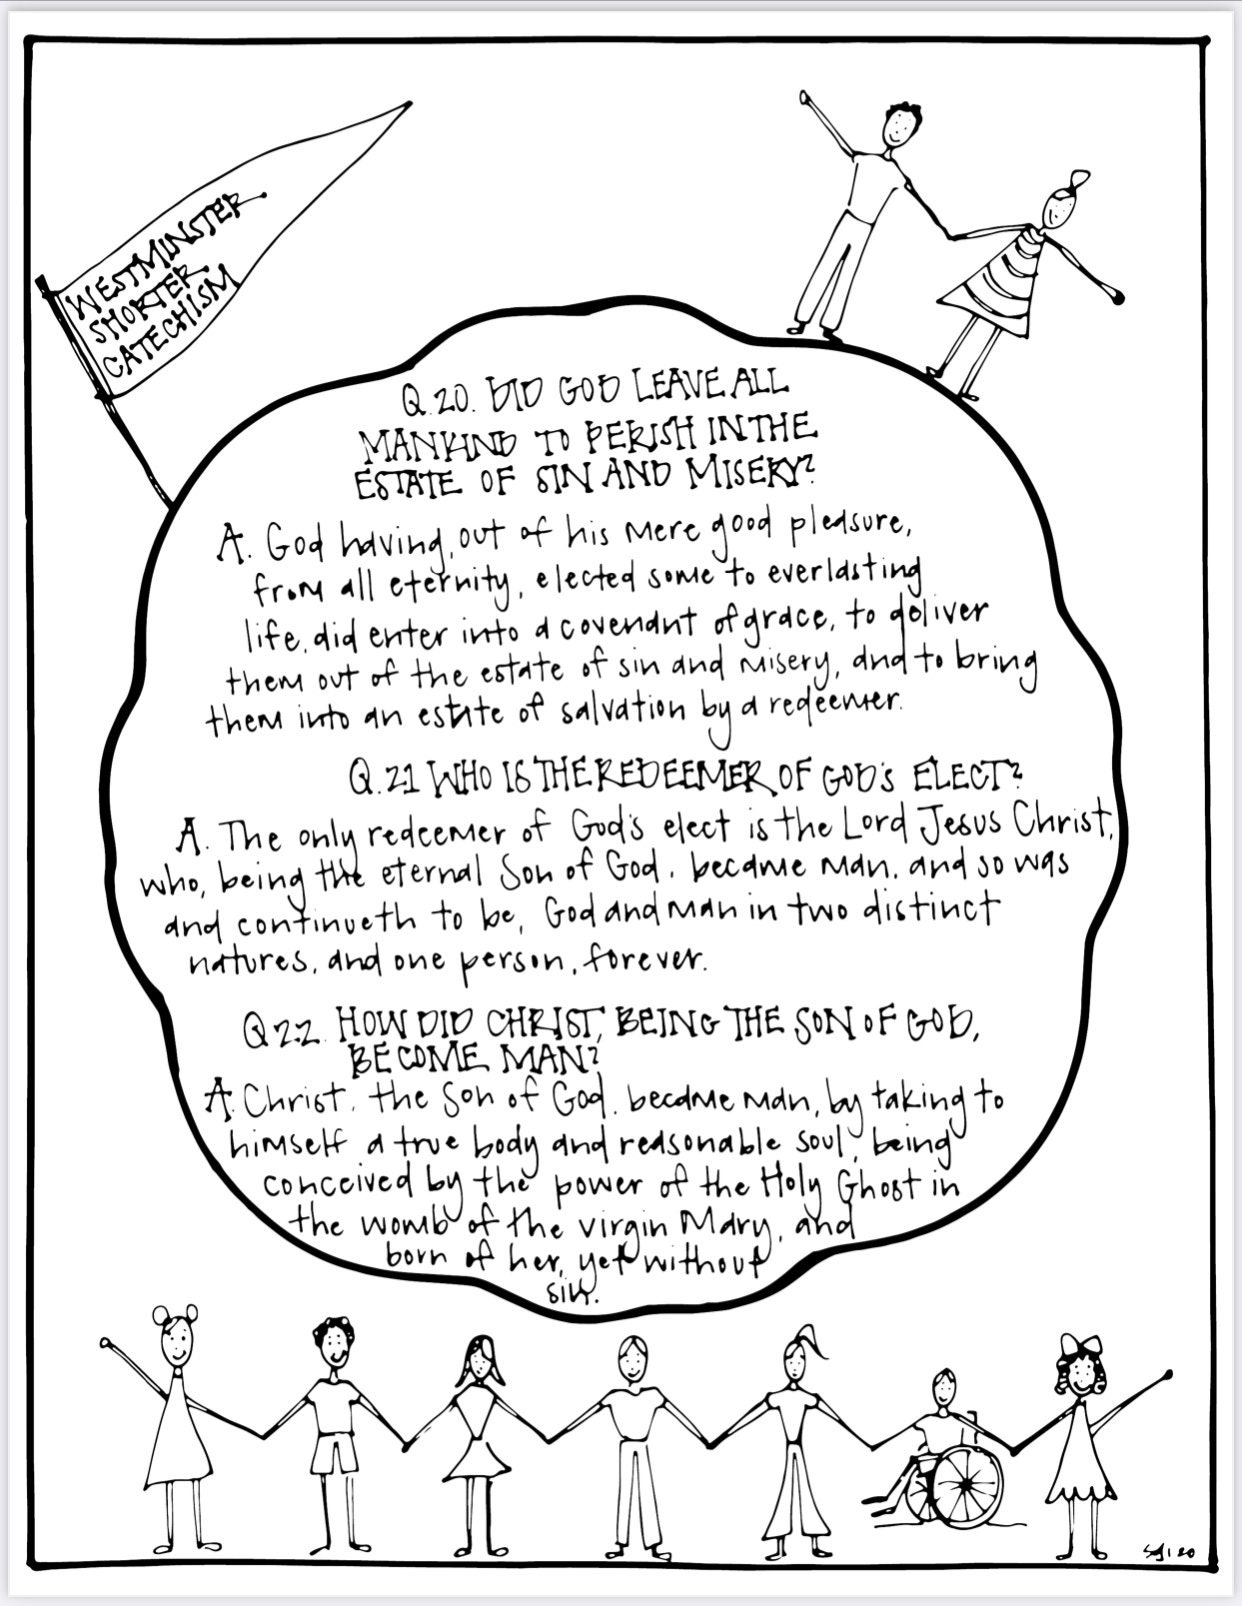 WESTMINSTER
SHORTER
CATECHISM
Q.20. DID GOD LEAVE ALL
MANKIND TO PERISH IN THE
ESTATE OF SIN AND MISERY?
A. God having, out of his mere good pleasure,
from all eternity, elected some to everlasting
life, did enter into a covenant of grace, to deliver
them out of the estate of sin and misery, and to bring
them into an estate of salvation by a redeemer.
Q.21 WHO IS THE REDEEMER OF GOD'S ELECT?
A. The only redeemer of God's elect is the Lord Jesus Christ,
who, being the eternal Son of God, became man, and so was
and continueth to be, God and man in two distinct
natures, and one person, forever.
Q 22. HOW DID CHRIST, BEING THE SON OF GOD,
BECOME MAN?
A. Christ, the Son of God, became man, by taking to
himself a true body and reasonable soul, being
conceived by the power of the Holy Ghost in
the womb of the virgin Mary, and
born of her, yet without
sin.